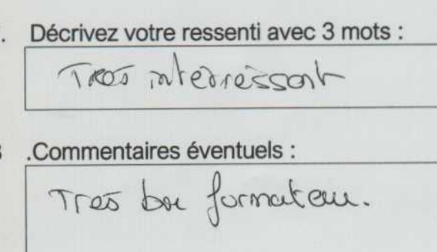 . Décrivez votre ressenti avec 3 mots :
Tres interressant
.Commentaires éventuels :
Tres bon formateur.